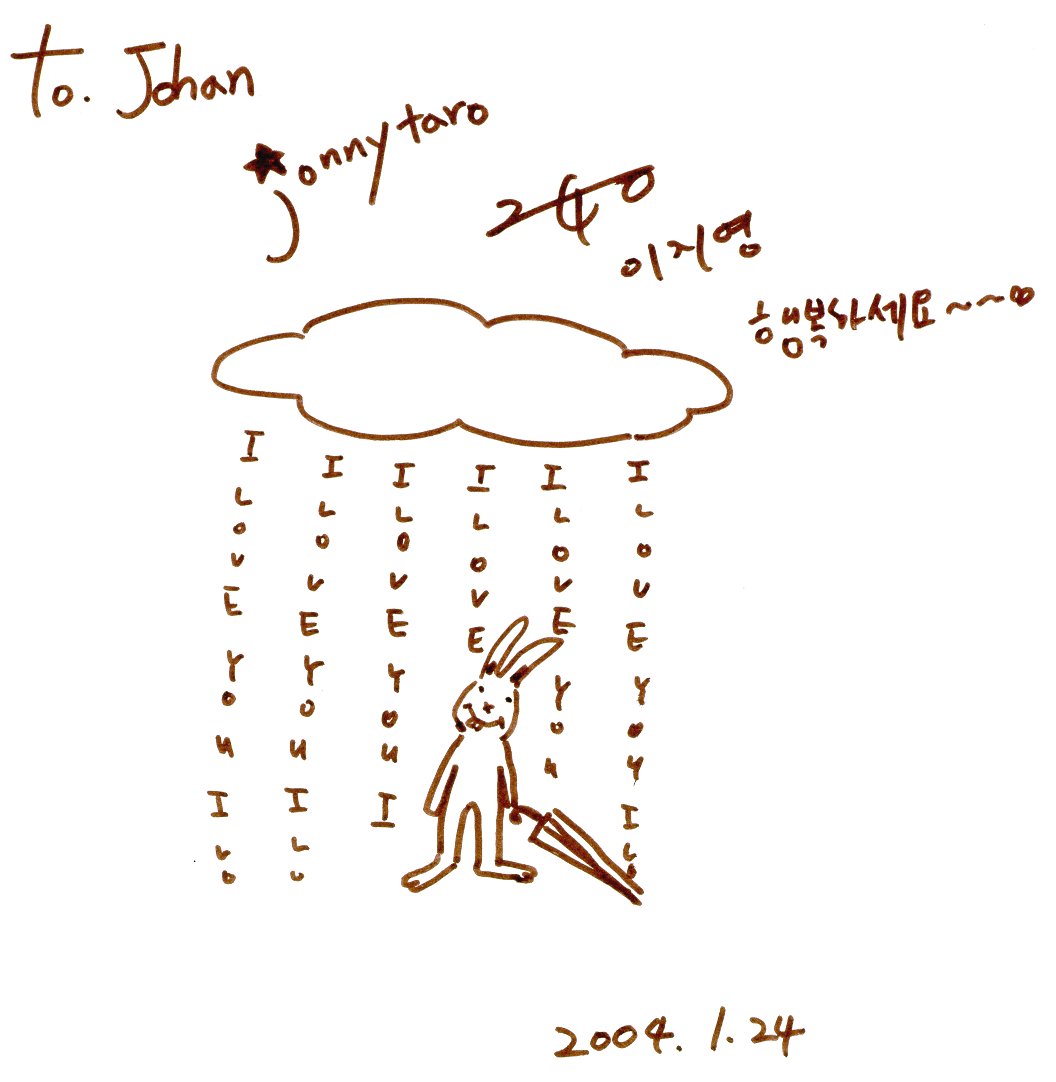 To. Johan
Jonnytaro
이지영
행복하세요~~∞
I LOVE YOU I LO
I LOVE YOU I LO
I LOVE YOU I
I LOVE
I LOVE YOU
I LOVE YOU I LO
2004. 1. 24